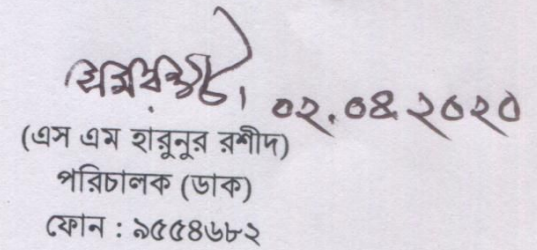 ০২.০৪.২০২০
(এস এম হারুনুর রশীদ)
পরিচালক (ডাক)
ফোন : ৯৫৫৪৬৮২